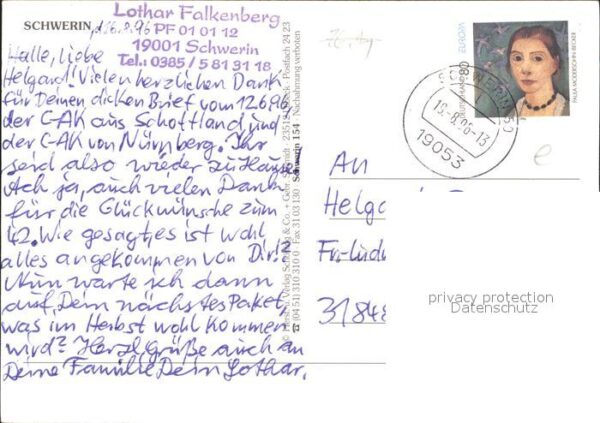 SCHWERIN, d.16.8.96
Lothar Falkenberg
PF 01 01 12
19001 Schwerin
Tel.: 0385 / 5 81 31 18
Hallo, liebe
Helgard! Vielen herzlichen Dank
für Deinen dicken Brief vom 12.6.96,
der C-AK aus Schottland und
der C-AK von Nürnberg. Ihr
seid also wieder zu Hause.
Ach ja, auch vielen Dank
für die Glückwünsche zum
42. Wie gesagt, es ist wohl
alles angekommen von Dir!
Nun warte ich dann
auf Dein nächstes Paket,
was im Herbst wohl kommen
wird? Herzl. Grüße auch an
Deine Familie Dein Lothar.
Verlag Schöning & Co. + Gebr. Schmidt · 23512 Lübeck · Postfach 24 23
☎ (04 51) 310 310 · Fax 31 03 130 · Schwerin 154 · Nachahmung verboten
EUROPA
DEUTSCHLAND 80
PAULA MODERSOHN-BECKER
SCHWERIN
-8.96-13
19053
e
An
Helga
Fr.-Ludw
31848
privacy protection
Datenschutz